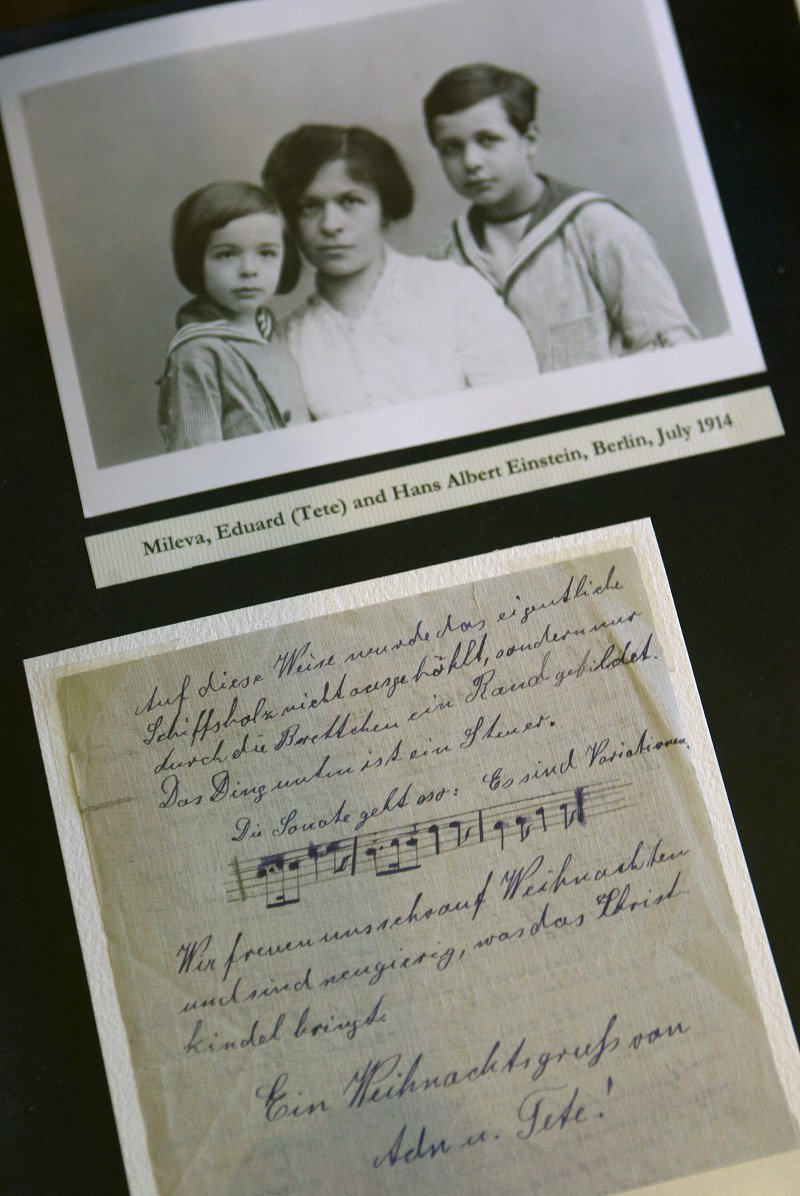 Mileva, Eduard (Tete) and Hans Albert Einstein, Berlin, July 1914
Auf diese Weise wurde das eigentliche
Schiffsholz nicht ausgehöhlt, sondern nur
durch die Brettchen ein Rand gebildet.
Das Ding unten ist ein Steuer.
Die Sonate geht so: Es sind Variationen.
Wir freuen uns schon auf Weihnachten
und sind neugierig, was das Christ
kindel bringt.
Ein Weihnachtsgruss von
Adn u. Tete!